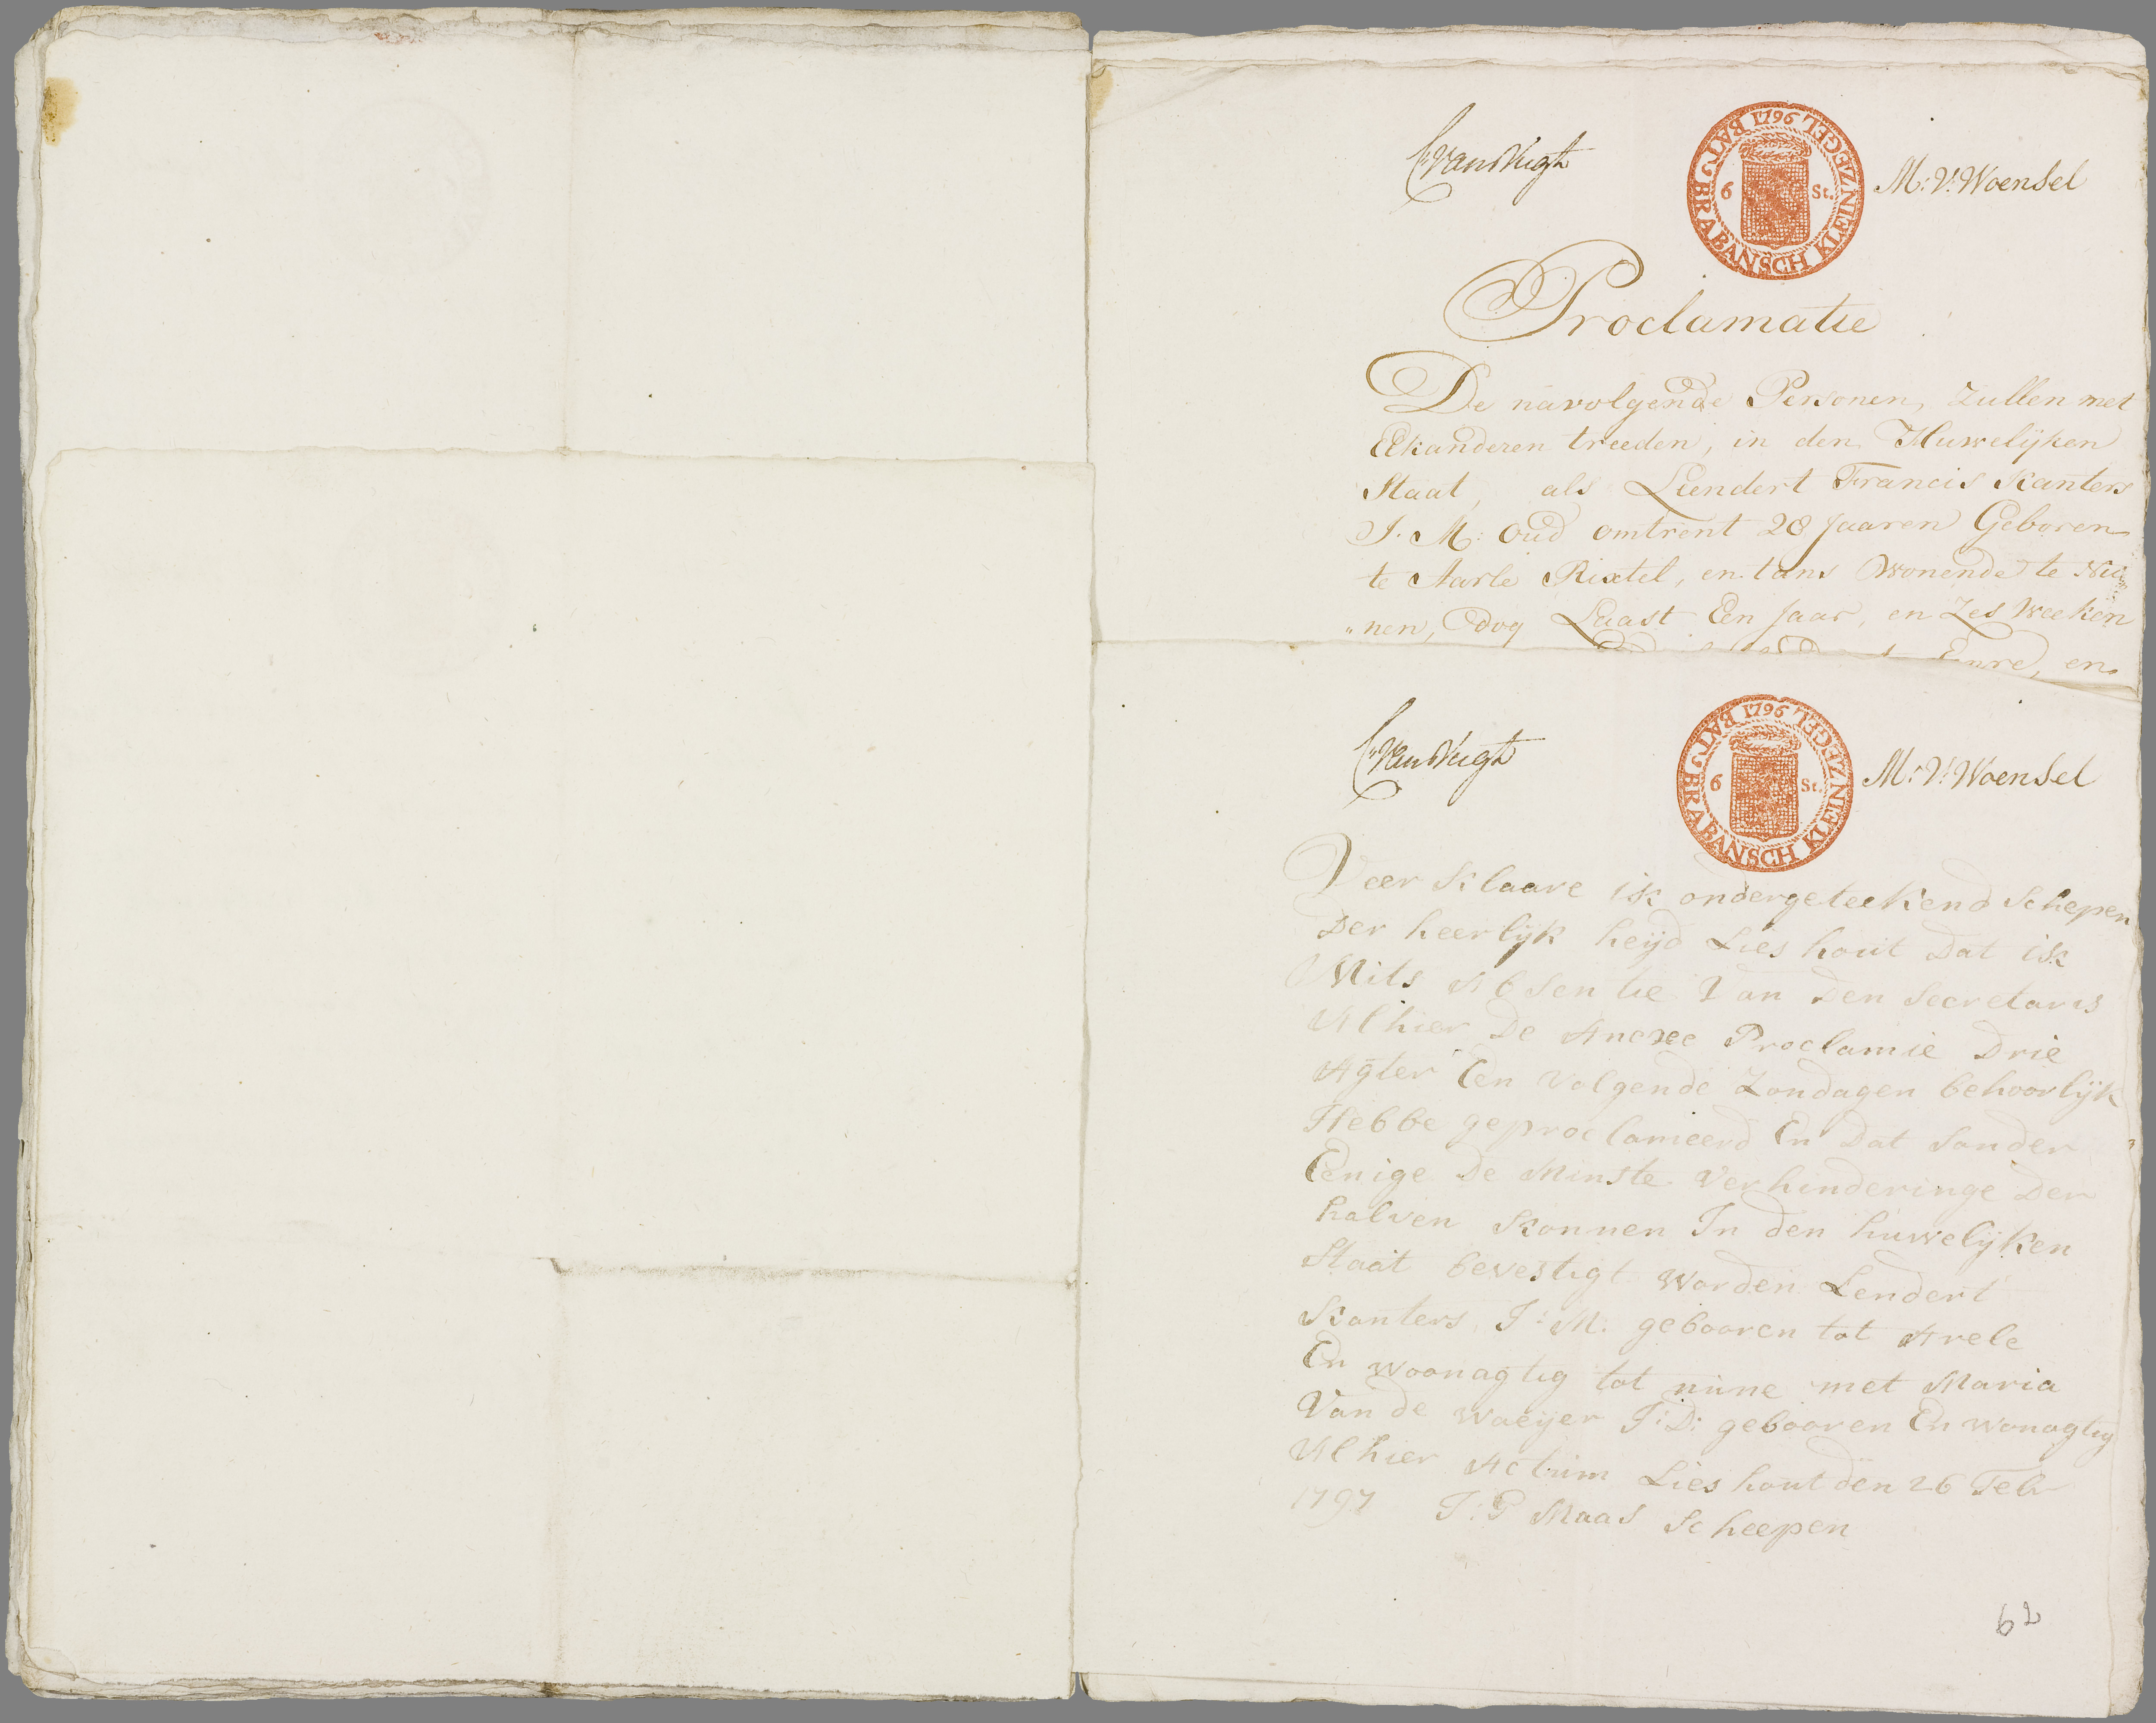 C. van Vugt
M: V: Woensel
BAT: BRABANSCH KLEIN ZEGEL 1796
6 St.
Proclamatie
De navolgende Personen, zullen met
Elkanderen treeden, in den Huwelijken
Staat, als Leendert Francis Kanters
J. M: oud omtrent 28 Jaaren Geboren
te Aarle Rixtel, en tans Wonende te Nu
„nen, dog Laast Een Jaar, en Zes Weeken
en
C. van Vugt
M: V: Woensel
BAT: BRABANSCH KLEIN ZEGEL 1796
6 St.
Veer Klaare ik ondergeteekend Schepen
Der heerlijk heijd Lies hout Dat ik
Mits Absentie Van Den Secretaris
Alhier De Anexee Proclamie Drie
Agter Een volgende Zondagen behoorlijk
Hebbe geproclameerd En Dat Sonder
Eenige De Minste Verhinderinge Der
halven Konnen In den huwelijken
Staat bevestigt Worden Lendert
Kanters J: M: gebooren tot Arele
En woonagtig tot nune met Maria
Van de Waeyer J: D: gebooren En wonagtig
Alhier Actum Lies hout den 26 Feb
1797 J: P Maas Scheepen
62